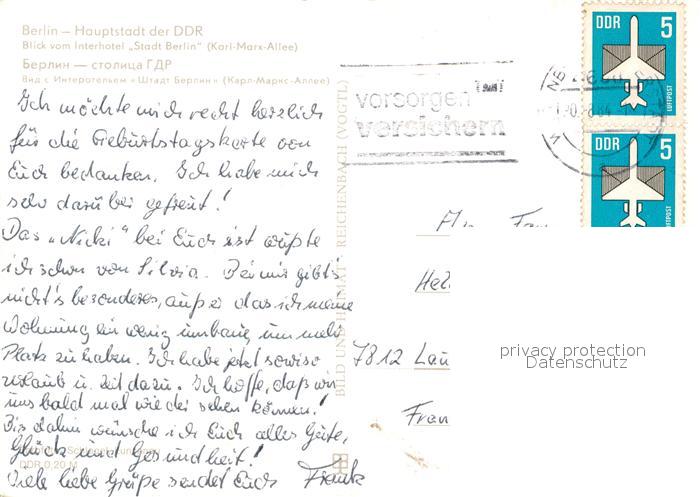 Berlin – Hauptstadt der DDR
Blick vom Interhotel „Stadt Berlin“ (Karl-Marx-Allee)
Берлин — столица ГДР
Вид с Интеротелем «Штадт Берлин» (Карл-Маркс-Аллее)
Ich möchte mich recht herzlich
für die Geburtstagskarte von
Euch bedanken. Ich habe mich
sehr darüber gefreut!
Das „Nicki“ bei Euch ist wußte
ich schon von Silvia. Bei mir gibt's
nicht's besonderes, außer das ich meine
Wohnung ein wenig umbaue, um mehr
Platz zu haben. Ich habe jetzt sowieso
Urlaub u. Zeit dazu. Ich hoffe, daß wir
uns bald mal wieder sehen können!
Bis dahin wünsche ich Euch alles Gute,
Glück und Gesundheit!
Viele liebe Grüße sendet Euch Frank
DDR 0,20 M
BILD UND HEIMAT REICHENBACH (VOGTL)
vorsorgen
versichern
DDR 5
LUFTPOST
DDR 5
LUFTPOST
7812 Lau
privacy protection
Datenschutz